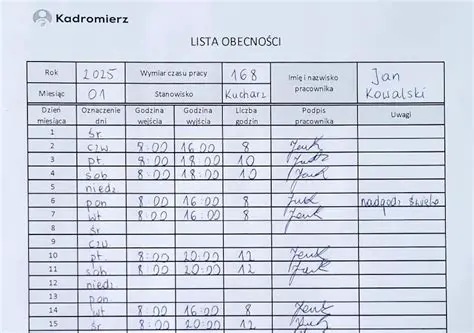 Kadromierz
LISTA OBECNOŚCI
Rok 2025 Wymiar czasu pracy 168 Imię i nazwisko pracownika Jan Kowalski
Miesiąc 01 Stanowisko Kucharz
Dzień miesiąca Oznaczenie dni Godzina wejścia Godzina wyjścia Liczba godzin Podpis pracownika Uwagi
1 śr
2 czw 8:00 16:00 8
3 pt 8:00 18:00 10
4 sob 8:00 18:00 10
5 niedz
6 pon 8:00 16:00 8 nadgodz święto
7 wt 8:00 16:00 8
8 śr
9 czw
10 pt 8:00 20:00 12
11 sob 8:00 20:00 12
12 niedz
13 pon
14 wt 8:00 16:00 8
15 śr 8:00 20:00 12